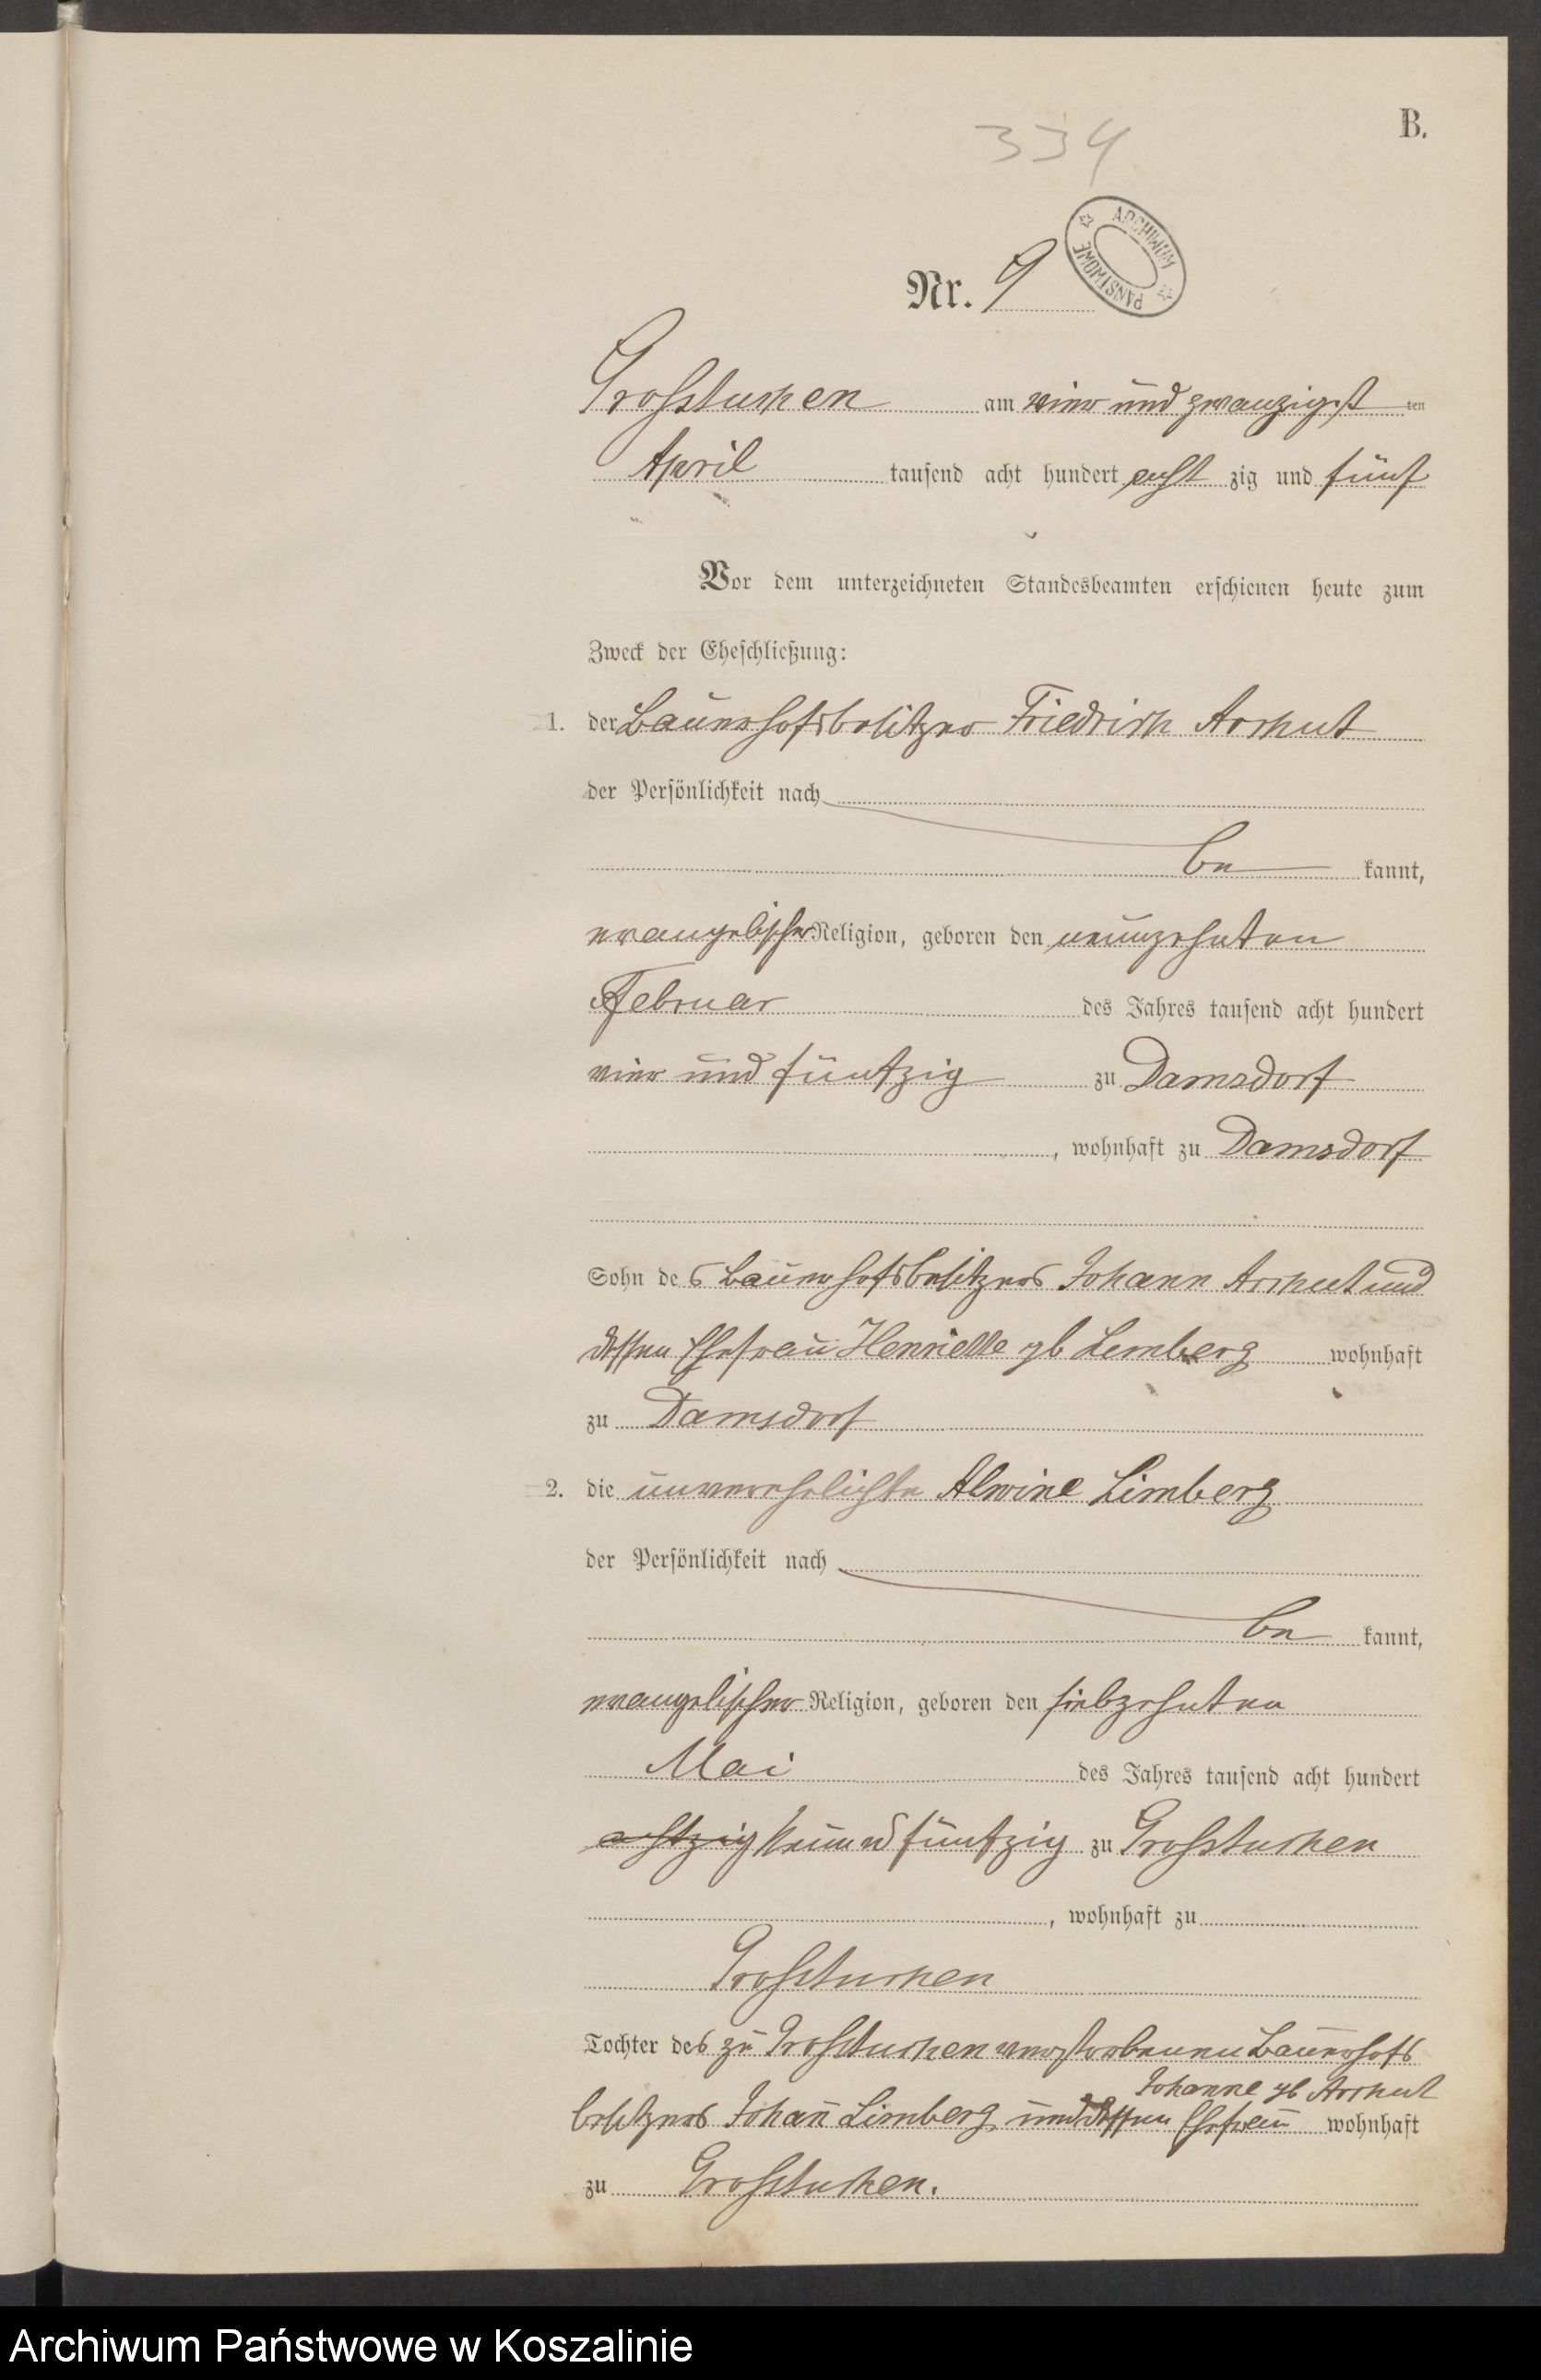 334
B.
ARCHIWUM PAŃSTWOWE
Nr. 9
Grosstuchen am vier und zwanzigst ten
April tausend acht hundert acht zig und fünf
Vor dem unterzeichneten Standesbeamten erschienen heute zum
Zweck der Eheschließung:
1. der Bauerhofsbesitzer Friedrich Aschut
der Persönlichkeit nach
be kannt,
evangelischer Religion, geboren den neunzehnten
Februar des Jahres tausend acht hundert
vier und fünfzig zu Damsdorf
, wohnhaft zu Damsdorf
Sohn des Bauerhofsbesitzers Johann Aschut und
dessen Ehefrau Henriette gb Lemberg wohnhaft
zu Damsdorf
2. die unverehelichte Alwine Limberg
der Persönlichkeit nach
be kannt,
evangelischer Religion, geboren den siebzehnten
Mai des Jahres tausend acht hundert
achtzig neun u fünfzig zu Grosstuchen
, wohnhaft zu
Grosstuchen
Tochter des zu Grosstuchen verstorbenen Bauerhofs
Johanne gb Aschut
besitzers Johann Limberg und dessen Ehefrau wohnhaft
zu Grosstuchen.
Archiwum Państwowe w Koszalinie